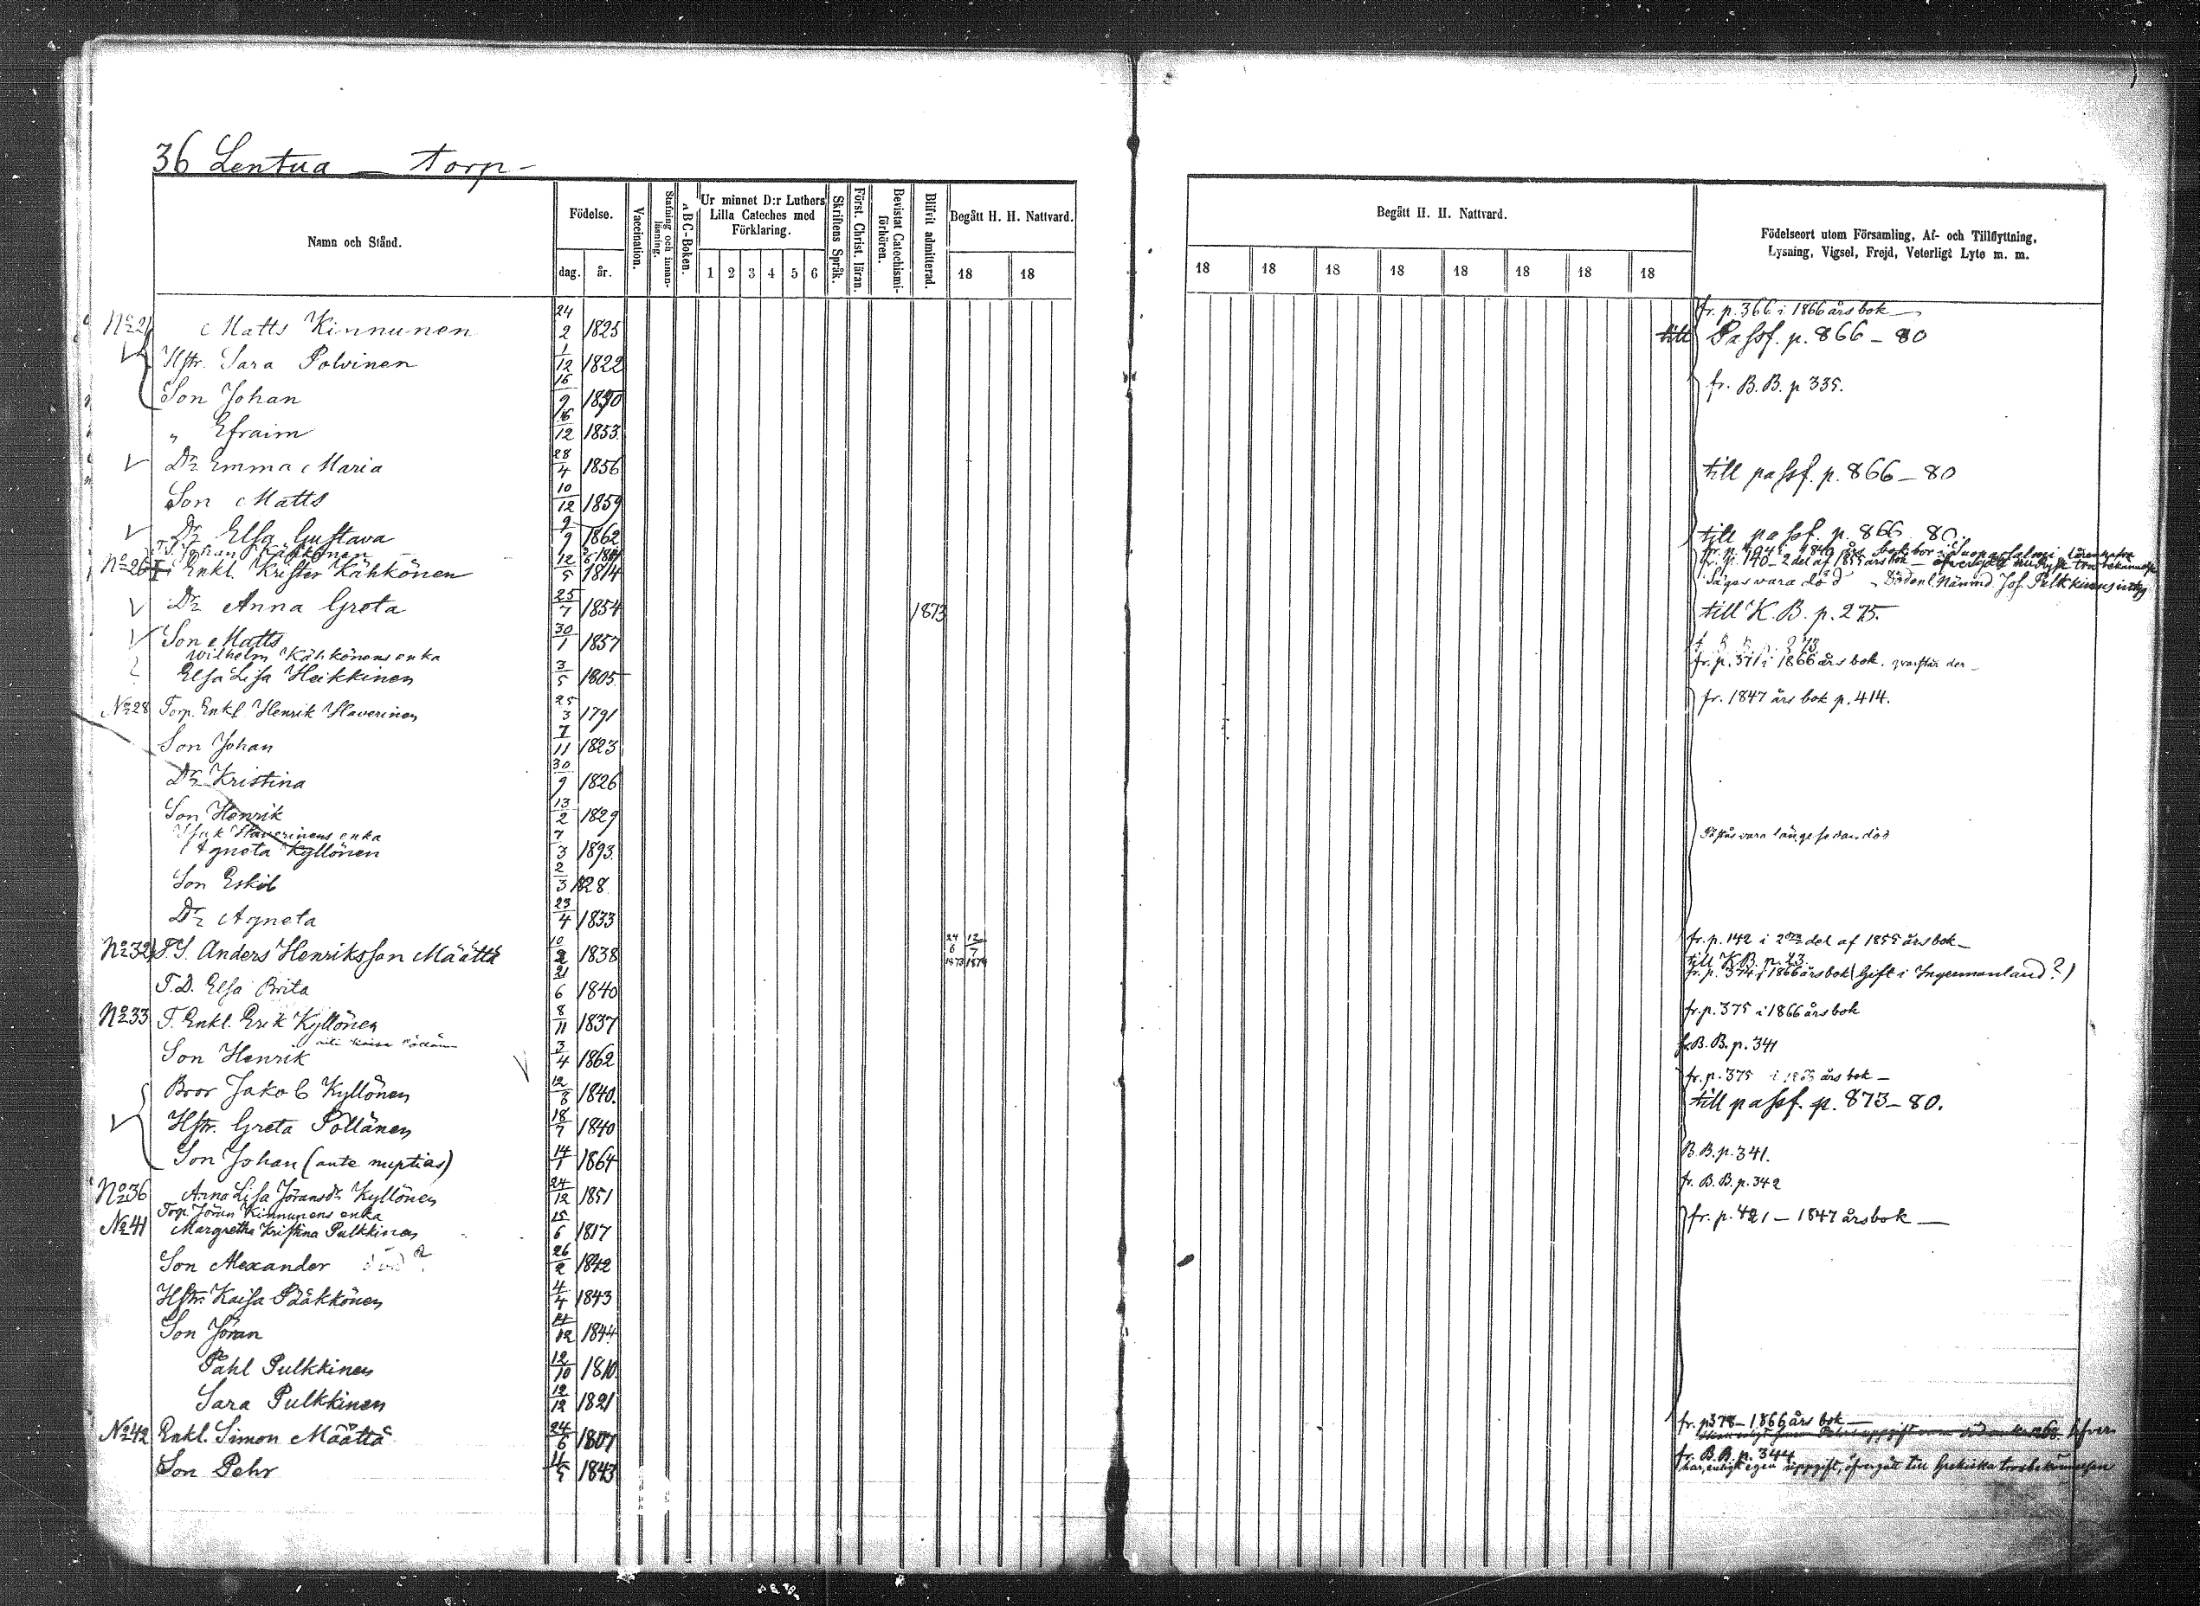 36 Lentua — torp -
Namn och Stånd.
Födelse.
dag. år.
Vaccination.
Stafning och innan-läsning.
ABC-Boken.
Ur minnet D:r Luthers Lilla Cateches med Förklaring.
1 2 3 4 5 6
Skriftens Språk.
Först. Christ. läran.
Bevistat Catechismi-förhören.
Blifvit admitterad.
Begått H. H. Nattvard.
18 18
Begått H. H. Nattvard.
18 18 18 18 18 18 18 18
Födelseort utom Församling, Af- och Tillflyttning, Lysning, Vigsel, Frejd, Veterligt Lyte m. m.
fr. p. 366 i 1866 års bok —
No 21 Matts Kinnunen 24/2 1825 till Passf. p. 866 – 80
Hstr. Sara Polvinen 1/12 1822
Son Johan 16/9 1850 fr. B.B. p 335.
" Efraim 16/12 1853
Dr Emma Maria 28/4 1856 till passf. p. 866 – 80
Son Matts 10/12 1859
Dr Elsa Gustava 9/9 1862 till passf. p. 866 80
T.S. Johan Kähkönen
No 26 Enkl. Krister Kähkönen 12/5 1814 fr. p. 140 – 2 del af 1855 års bok
Säges vara död
Dr Anna Greta 25/7 1854 1873 till K.B. p. 275.
Son Matts 30/1 1857
Wilhelm Kähkönens enka fr. p. 371 i 1866 års bok.
Elsa Lisa Heikkinen 3/5 1805
No 28 Torp. Enkl Henrik Haverinen 25/3 1791 fr. 1847 års bok p. 414.
Son Johan 7/11 1823
Dr Kristina 30/9 1826
Son Henrik 13/2 1829
Haverinens enka
Agneta Kyllönen 7/3 1893 vara länge sedan död
Son Eskil 2/3 1828
Dr Agneta 23/4 1833
No 32 T.S. Anders Henriksson Määttä 10/2 1838 24/6 1873 12/7 1874 fr. p. 142 i 2dra del af 1855 års bok —
till K.B. p. 23.
T.D. Elsa Brita 21/6 1840 fr. p. 374 i 1866 års bok (Gift i Ingermanland?)
No 33 T. Enkl. Erik Kyllönen 8/11 1837 fr. p. 375 i 1866 års bok
Son Henrik 3/4 1862 fr. B.B. p. 341
fr. p. 375 i 1866 års bok —
Bror Jakob Kyllönen 12/8 1840. till passf. p. 873 – 80.
Hstr. Greta Pöllänen 18/7 1840
Son Johan (ante nuptias) 14/1 1864 B.B. p. 341.
No 36 Anna Lisa Jöransdr Kyllönen 24/12 1851 fr. B.B. p. 342
Torp. Jöran Kinnunens enka
No 41 Margretha Kristina Pulkkinen 15/6 1817 fr. p. 421 – 1847 års bok —
Son Alexander död? 26/2 1842
Hstr. Kaisa Pääkkönen 4/4 1843
Son Jöran 14/12 1844
Påhl Pulkkinen 12/10 1810.
Sara Pulkkinen 12/12 1821
No 42 Enkl. Simon Määttä 24/6 1807 fr. p 378 – 1866 års bok —
Son Pehr 11/5 1843 fr. B.B. p. 344
har, enligt egen uppgift, öfvergått till Grekiska trosbekännelsen